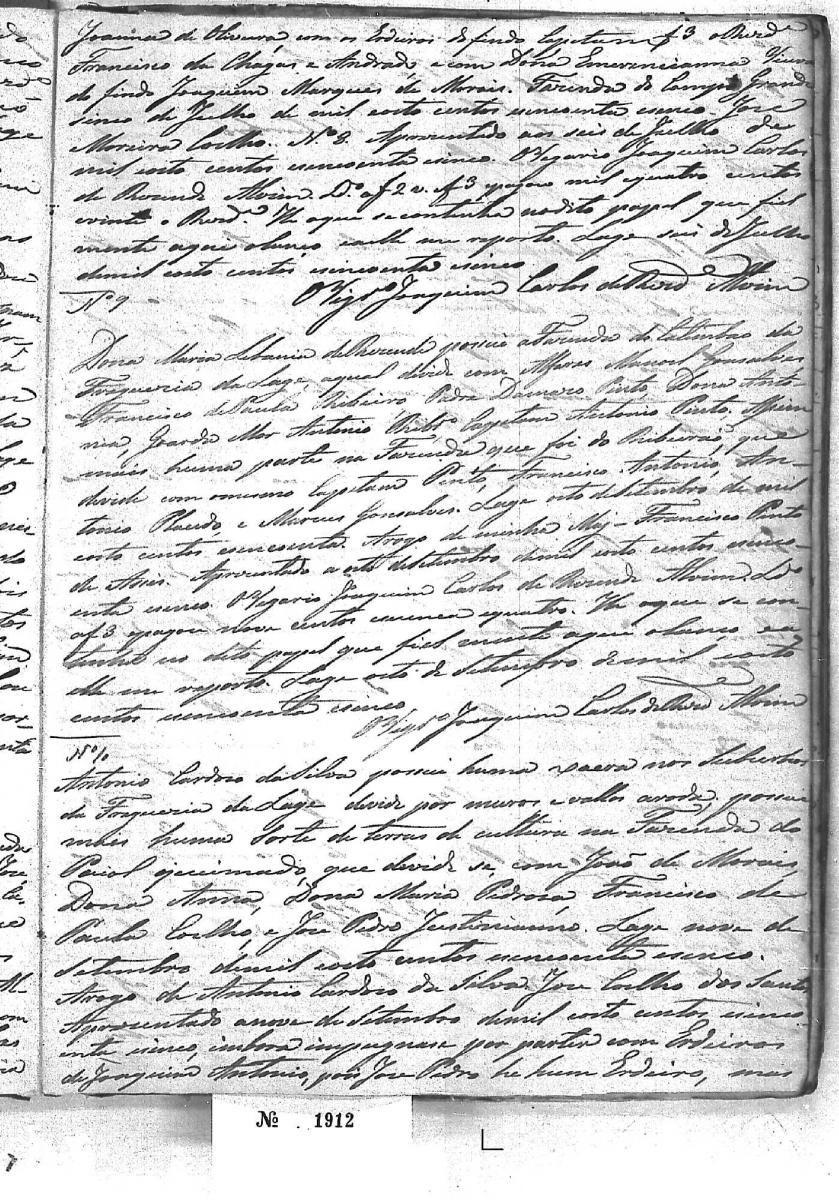 Joauina de Oliveira com os Erdeiros do findo Capitam f 3 o Rezd.e
Francisco das Chagas e Andrade e com Dona Emerencianna Viuva
do findo Joaquim Marques de Morais. Fazenda do Campo Grande
sinco de Juelho de mil oito centos esincoenta esinco. Jose
Moreira Coelho. N.º 8. Aprezentado aos seis de Juelho de
mil oito centos esincoenta esinco. O Vigario Joaquim Carlos
de Rezende Alvim. D.º af 2 v. af 3 epagou mil equatro centos
evinte o Rezd.e He oque se continha nodito papel que fiel
mente aqui olanco eaelle me reporto. Lage seis de Juelho
demil oito centos esincoenta esinco
O Vig.rº Joaquim Carlos de Rezd.e Alvim
Nº 9
Dona Maria Lebania de Rezende possue aFazenda do da
Fregueria da Lage, aqual divide com Alferes Manoel Gonsalves
Francisco de Paula Ribeiro, Padre Damazo Pinto, Dona Anto
nia, Goarda Mor Antonio Ribr.º Capitam Antonio Pinto. Assim
mais huma parte na Fazenda que foi do Ribeirão, que
devide com omesmo Capitam Pinto, Francisco Antonio, An-
tonio Placido, e Marcus Gonsalves. Lage oito deSetembro de mil
oito centos esincoenta. Arogo de minha Maj- Francisco Pinto
de Assis. Aprezentado a oito deSetembro demil oito centos esinco-
enta esinco. O Vigario Joaquim Carlos de Rezende Alvim. L.dº
af 3 epagou nove centos equatro. He oque se con-
tinha no dito papel que fiel mente aqui olanco, ea
elle me reporto. Lage oito de Setembro demil oito
centos esincoenta esinco
O Vig.rº Joaquim Carlos de Rezd.e Alvim
Nº 10
Antonio Cardozo da Silva possue huma xacra nos Suburbios
da Fregueria da Lage devide por muros e vallos aroda, possue
mais huma sorte de terras de cultura na Fazenda do
Paiol queimado, que devide se, com João de Morais,
Dona Anna, Dona Maria Pedroza, Francisco de
Paula Coelho, e Jose Pedro Justinianno. Lage nove de
Setembro demil oito centos esincoenta esinco.
Arogo de Antonio Cardozo da Silva Joze Coelho dos Santos
Aprezentado anove de Setembro demil oito centos esinco
enta esinco, imbora impugnase por partir com Erdeiros
de Joaquim Antonio, pois Joze Pedro he hum Erdeiro, mas
Nº 1912